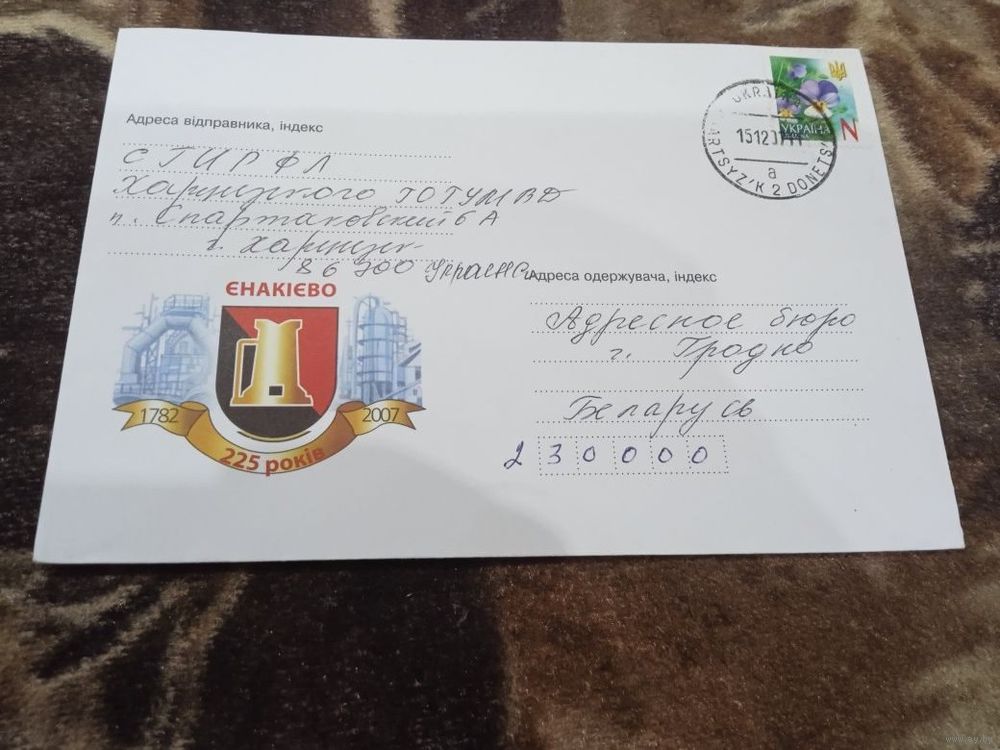 Адреса відправника, індекс
СГИРФЛ
Харцизкого ГОГУМВД
п. Спартаковский 6А
г. Харцизк
86700 Украина
УКРАЇНА
N
UKRAI
ARTSYZ'K 2 DONETS'
151207
а
ЄНАКІЄВО
1782
2007
225 років
Адреса одержувача, індекс
Адресное бюро
г. Гродно
Беларусь
230000
www.ay.by